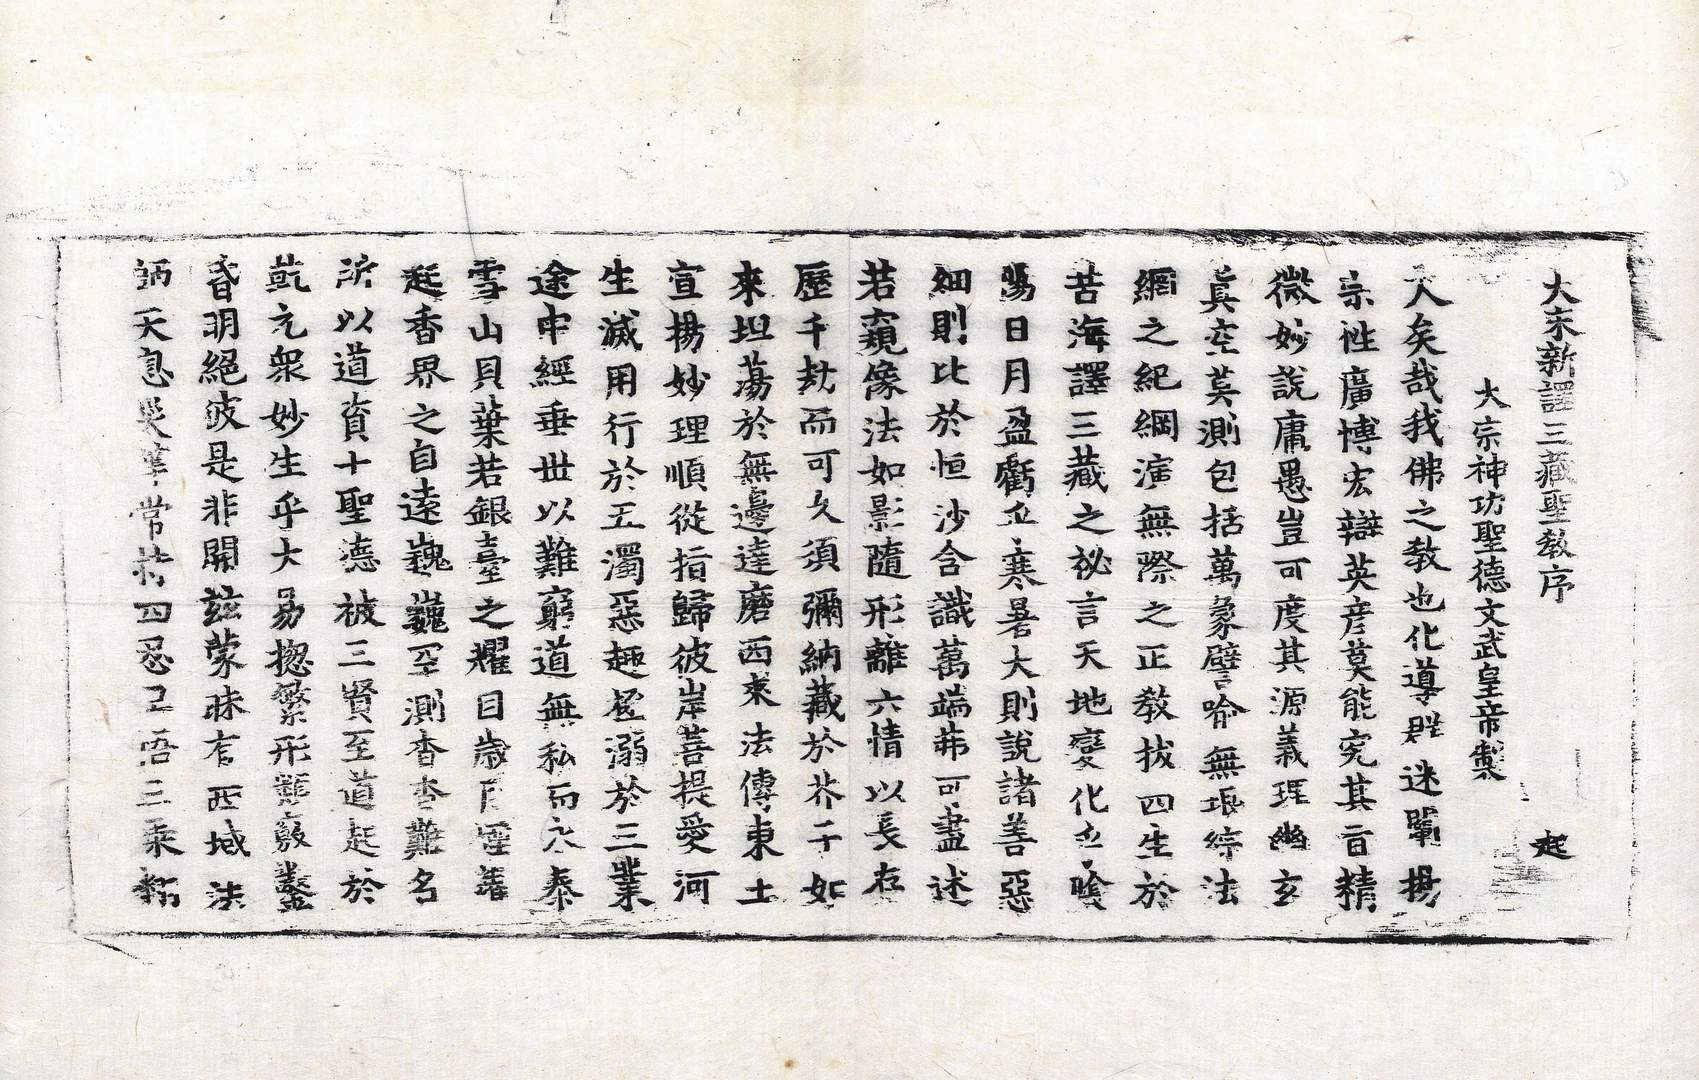 大宋新譯三藏聖教序 起
大宗神功聖德文武皇帝製
大矣哉我佛之教也化導群迷闡揚
宗性廣博宏辯英彦莫能究其旨精
微妙說庸愚豈可度其源義理幽玄
真空莫測包括萬象譬喻無垠綜法
網之紀綱演無際之正教拔四生於
苦海譯三藏之祕言天地變化乎陰
陽日月盈虧乎寒暑大則說諸善惡
細則比於恒沙含識萬端弗可盡述
若窺像法如影隨形離六情以長存
歷千劫而可久須彌納藏於芥子如
來坦蕩於無邊達磨西來法傳東土
宣揚妙理順從指歸彼岸菩提愛河
生滅用行於五濁惡趣拯溺於三業
途中經垂世以難窮道無私而永泰
雪山貝葉若銀臺之耀目歲月烟蘿
起香界之自遠巍巍罕測杳杳難名
所以道資十聖德被三賢至道起於
乾元衆妙生乎太易揔繁形類竅鑿
昏明絕彼是非開玆蒙昧有西域法
師天息災等常持四忍早悟三乘翻